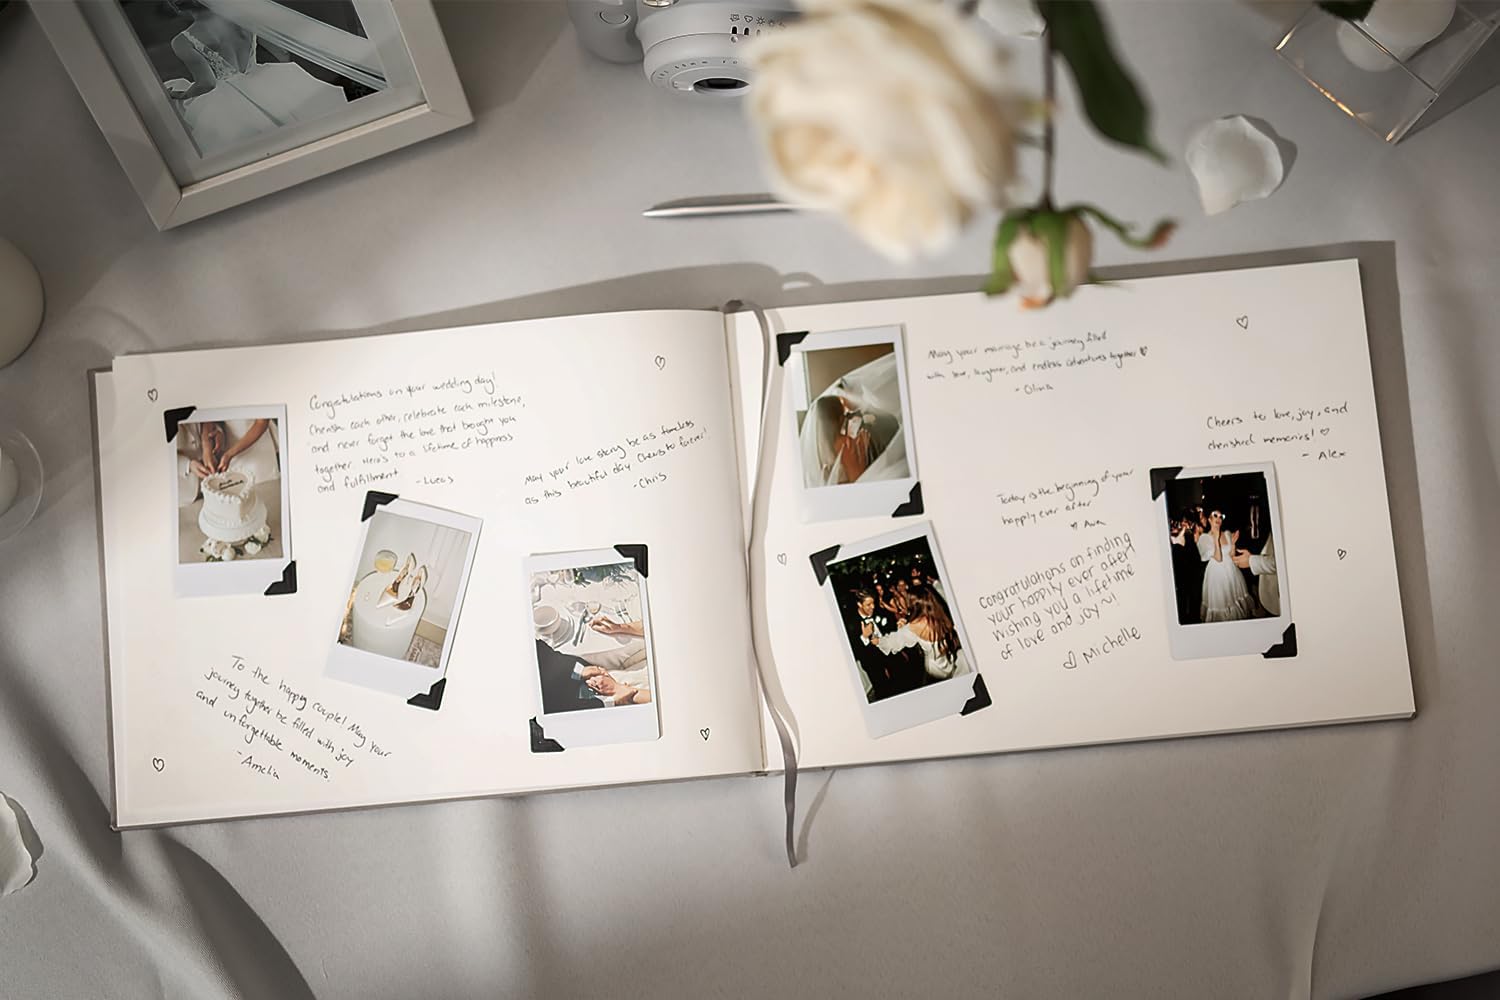 Congratulations on your wedding day!
Cherish each other, celebrate each milestone,
and never forget the love that brought you
together. Here's to a lifetime of happiness
and fulfillment
- Lucas
May your love story be as timeless
as this beautiful day. Cheers to forever!
- Chris
To the happy couple! May your
journey together be filled with joy
and unforgettable moments.
- Amelia
May your marriage be a journey filled
with love, laughter, and endless adventures together
- Olivia
Cheers to love, joy, and
cherished memories!
- Alex
Today is the beginning of your
happily ever after
Ava
Congratulations on finding
your happily ever after!
Wishing you a lifetime
of love and joy~!
Michelle